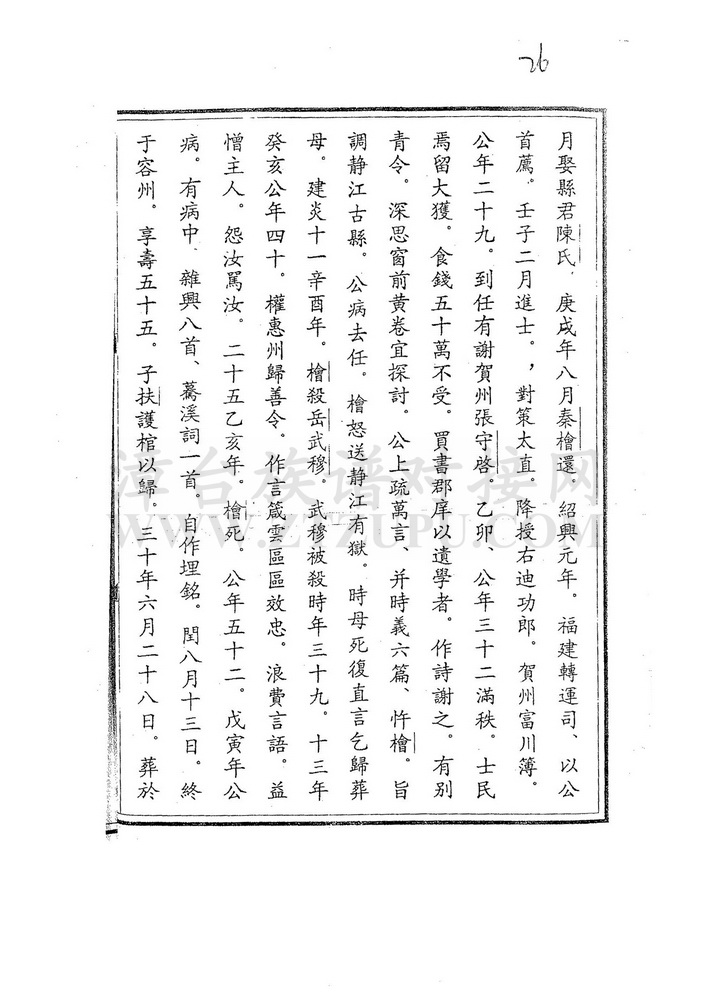 26
月娶縣君陳氏．庚戌年八月秦檜還。紹興元年。福建轉運司、以公
首薦。壬子二月進士。，對策太直。降授右迪功郎。賀州富川簿。
公年二十九。到任有謝賀州張守啓。乙卯、公年三十二滿秩。士民
焉留大獲。食錢五十萬不受。買書郡庠以遺學者。作詩謝之。有別
青令。深思窗前黄卷宜探討。公上疏萬言、并時義六篇、忤檜。旨
調靜江古縣。公病去任。檜怒送靜江有獄。時母死復直言乞歸葬
母。建炎十一辛酉年。檜殺岳武穆。武穆被殺時年三十九。十三年
癸亥公年四十。權惠州歸善令。作言箴雲區區效忠。浪費言語。益
憎主人。怨汝罵汝。二十五乙亥年。檜死。公年五十二。戊寅年公
病。有病中．雜興八首、驀溪詞一首。自作埋銘。閏八月十三日。終
于容州。享壽五十五。子扶護棺以歸。三十年六月二十八日。葬於
漳台族谱对接网
WWW.ZTZUPU.COM